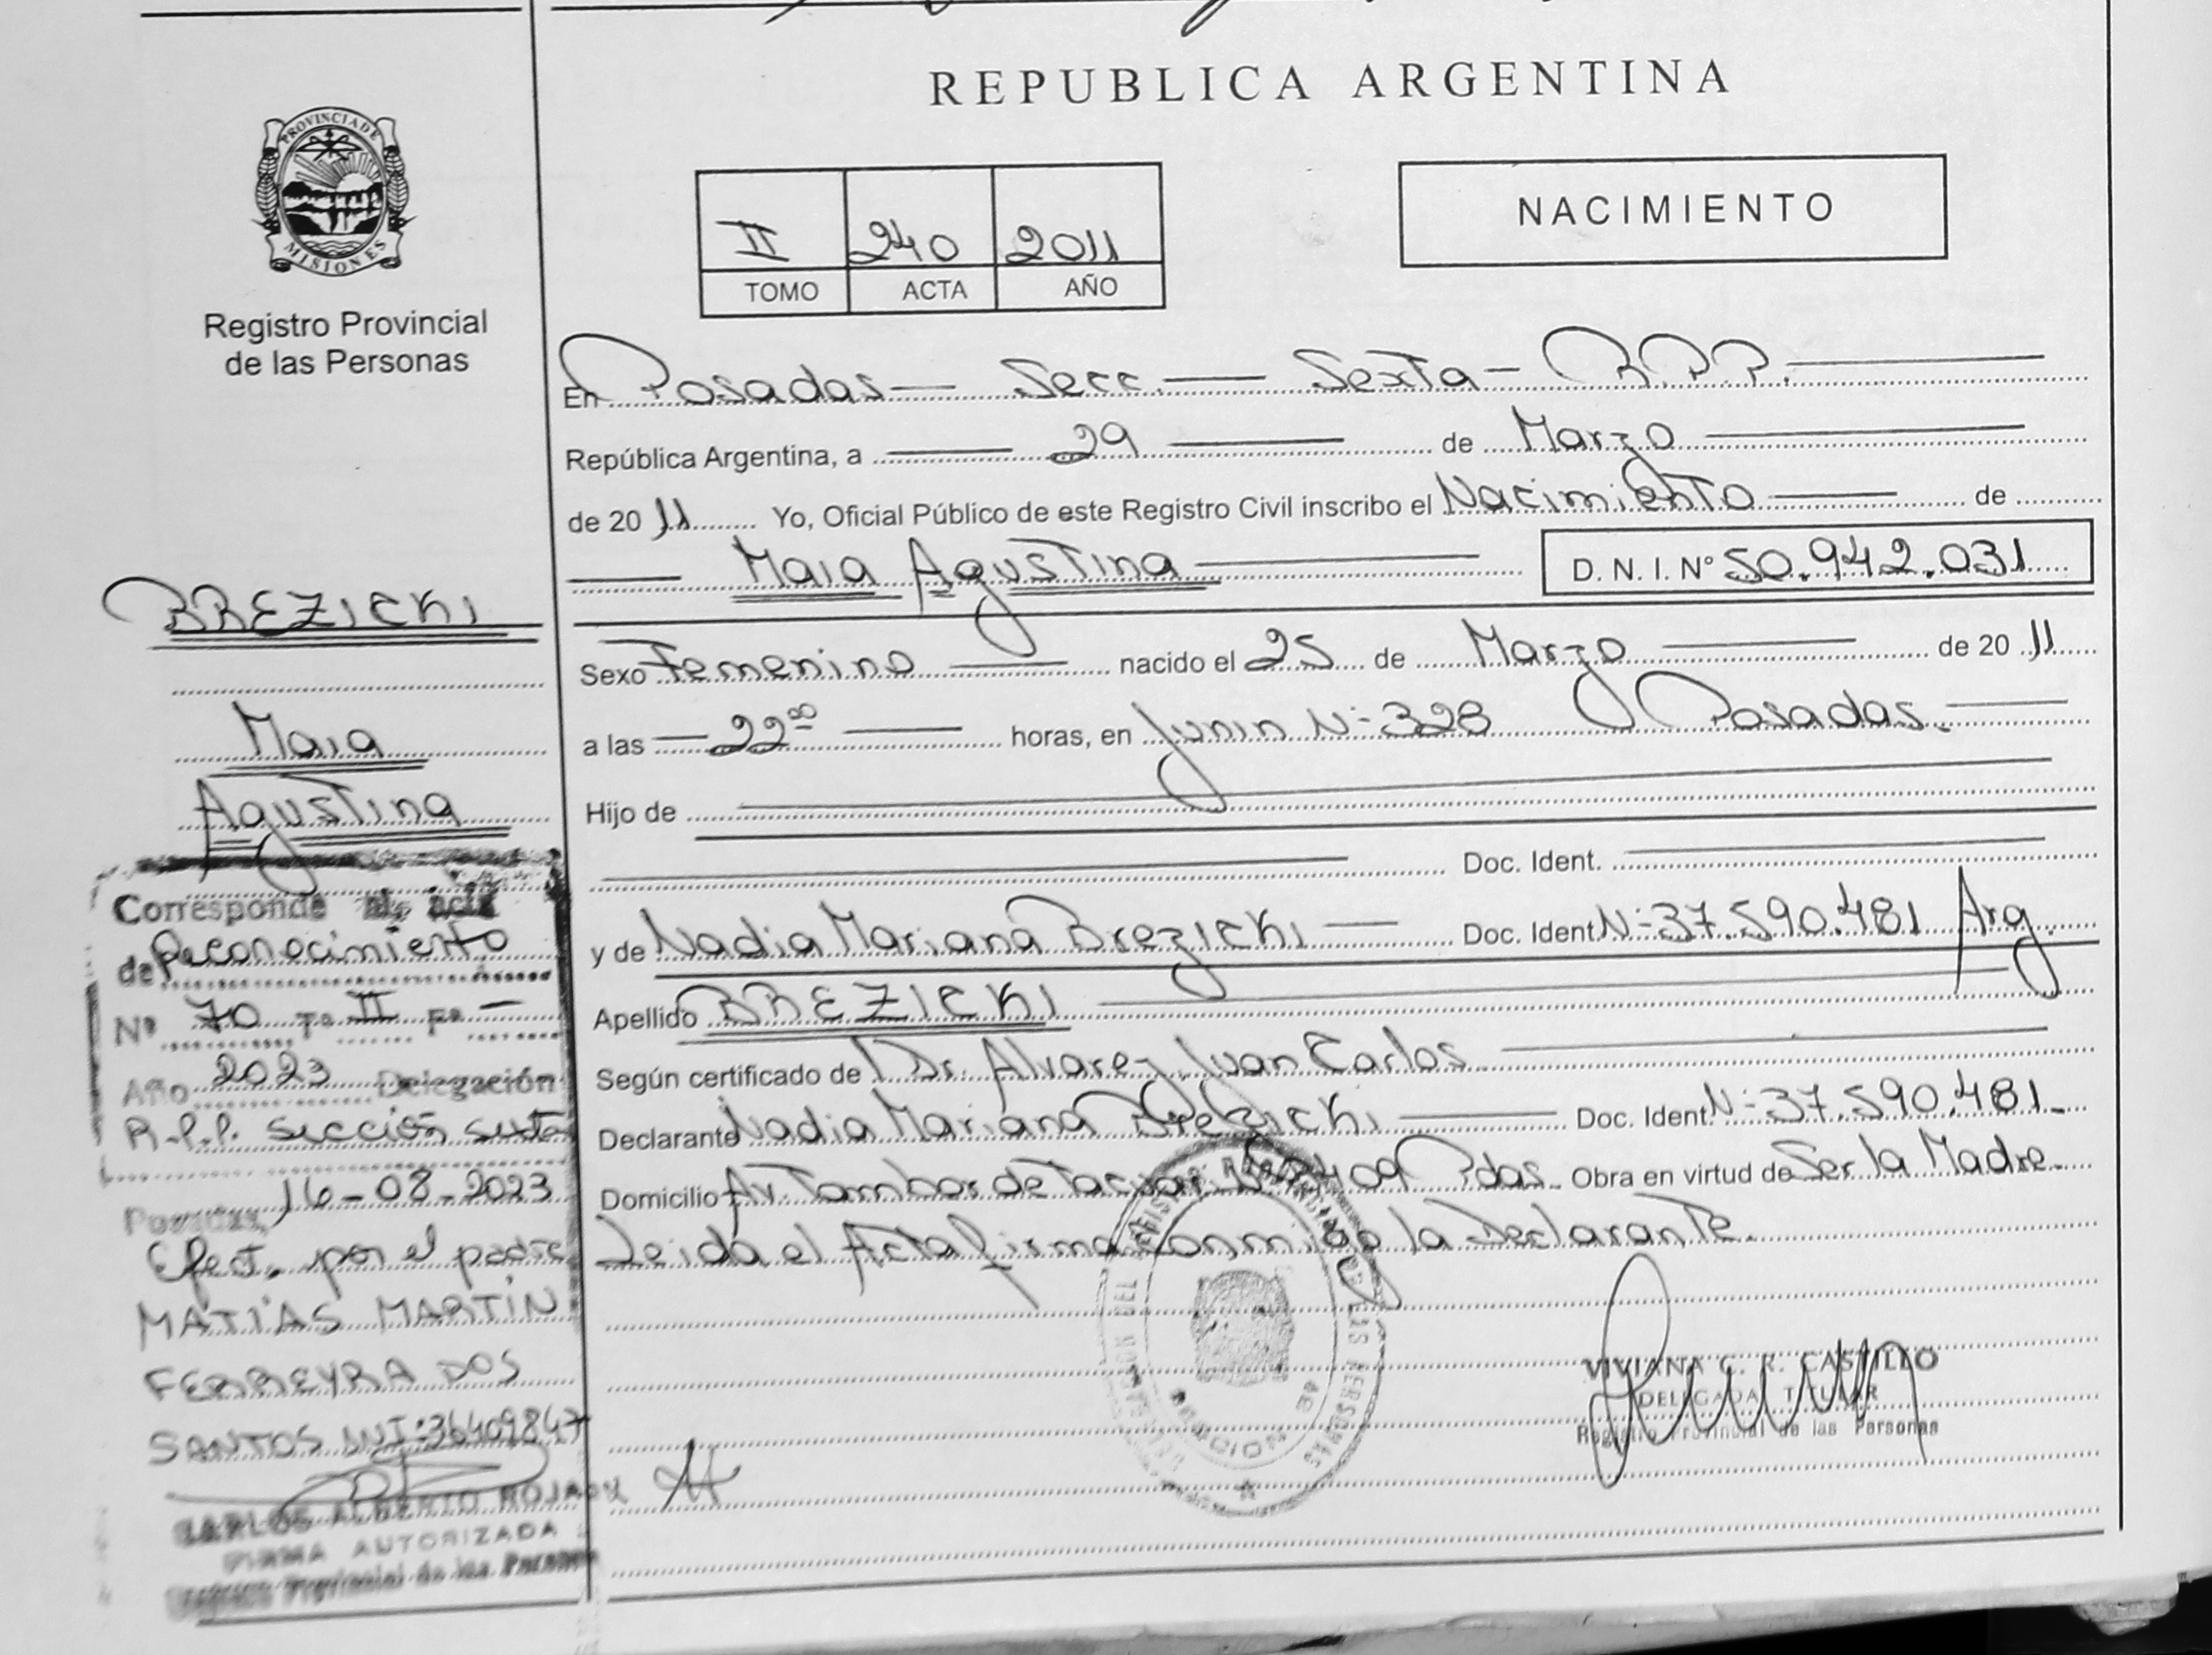 REPUBLICA ARGENTINA
PROVINCIA DE
MISIONES
Registro Provincial
de las Personas
II 240 2011
TOMO ACTA AÑO
NACIMIENTO
En Posadas - Secc. - Sexta - R.P.P.
República Argentina, a 29 de Marzo
de 2011 Yo, Oficial Público de este Registro Civil inscribo el Nacimiento de
Maia Agustina D. N. I. Nº 50.942.031
Sexo Femenino nacido el 25 de Marzo de 2011
a las 22⁰⁰ horas, en Junin Nº 328 Posadas.
Hijo de
Doc. Ident.
y de Nadia Mariana Brezicki Doc. Ident Nº 37.590.481 Arg.
Apellido BREZICKI
Según certificado de Dr. Alvarez Juan Carlos
Declarante Nadia Mariana Brezicki Doc. Ident. Nº 37.590.481.
Domicilio Av. Tambor de Tacuari 409 Pdas. Obra en virtud de Ser la Madre.
Leida el Acta firma conmigo la Declarante.
VIVIANA C. R. CASTILLO
DELEGADA TITULAR
Registro Provincial de las Personas
BREZICKI
Maia
Agustina
Corresponde al acta
de Reconocimiento
Nº 70 Tº II Fº -
Año 2023 Delegación
R.P.P. sección sexta
Posadas, 16-08-2023
Efect. por el padre
MATÍAS MARTÍN
FERREYRA DOS
SANTOS DNI: 36409847
CARLOS ALBERTO
FIRMA AUTORIZADA
Registro Provincial de las Personas